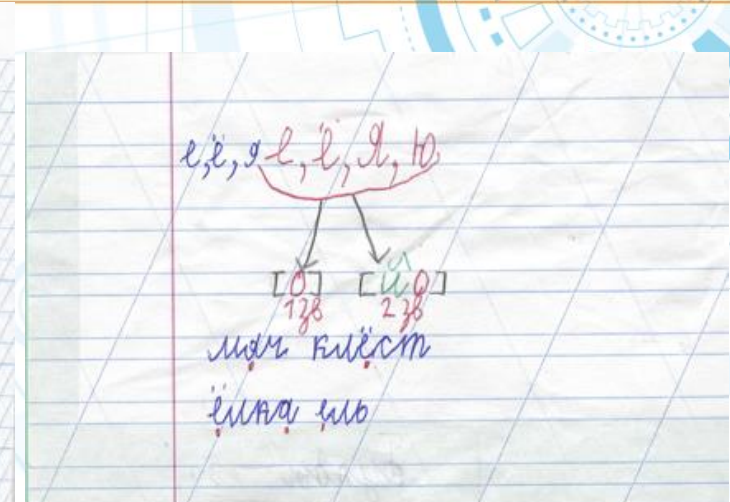 е, ё, я е, ё, Я, Ю
[О] [ЙО]
1зв 2 зв
мяч клёст
ёлка ель